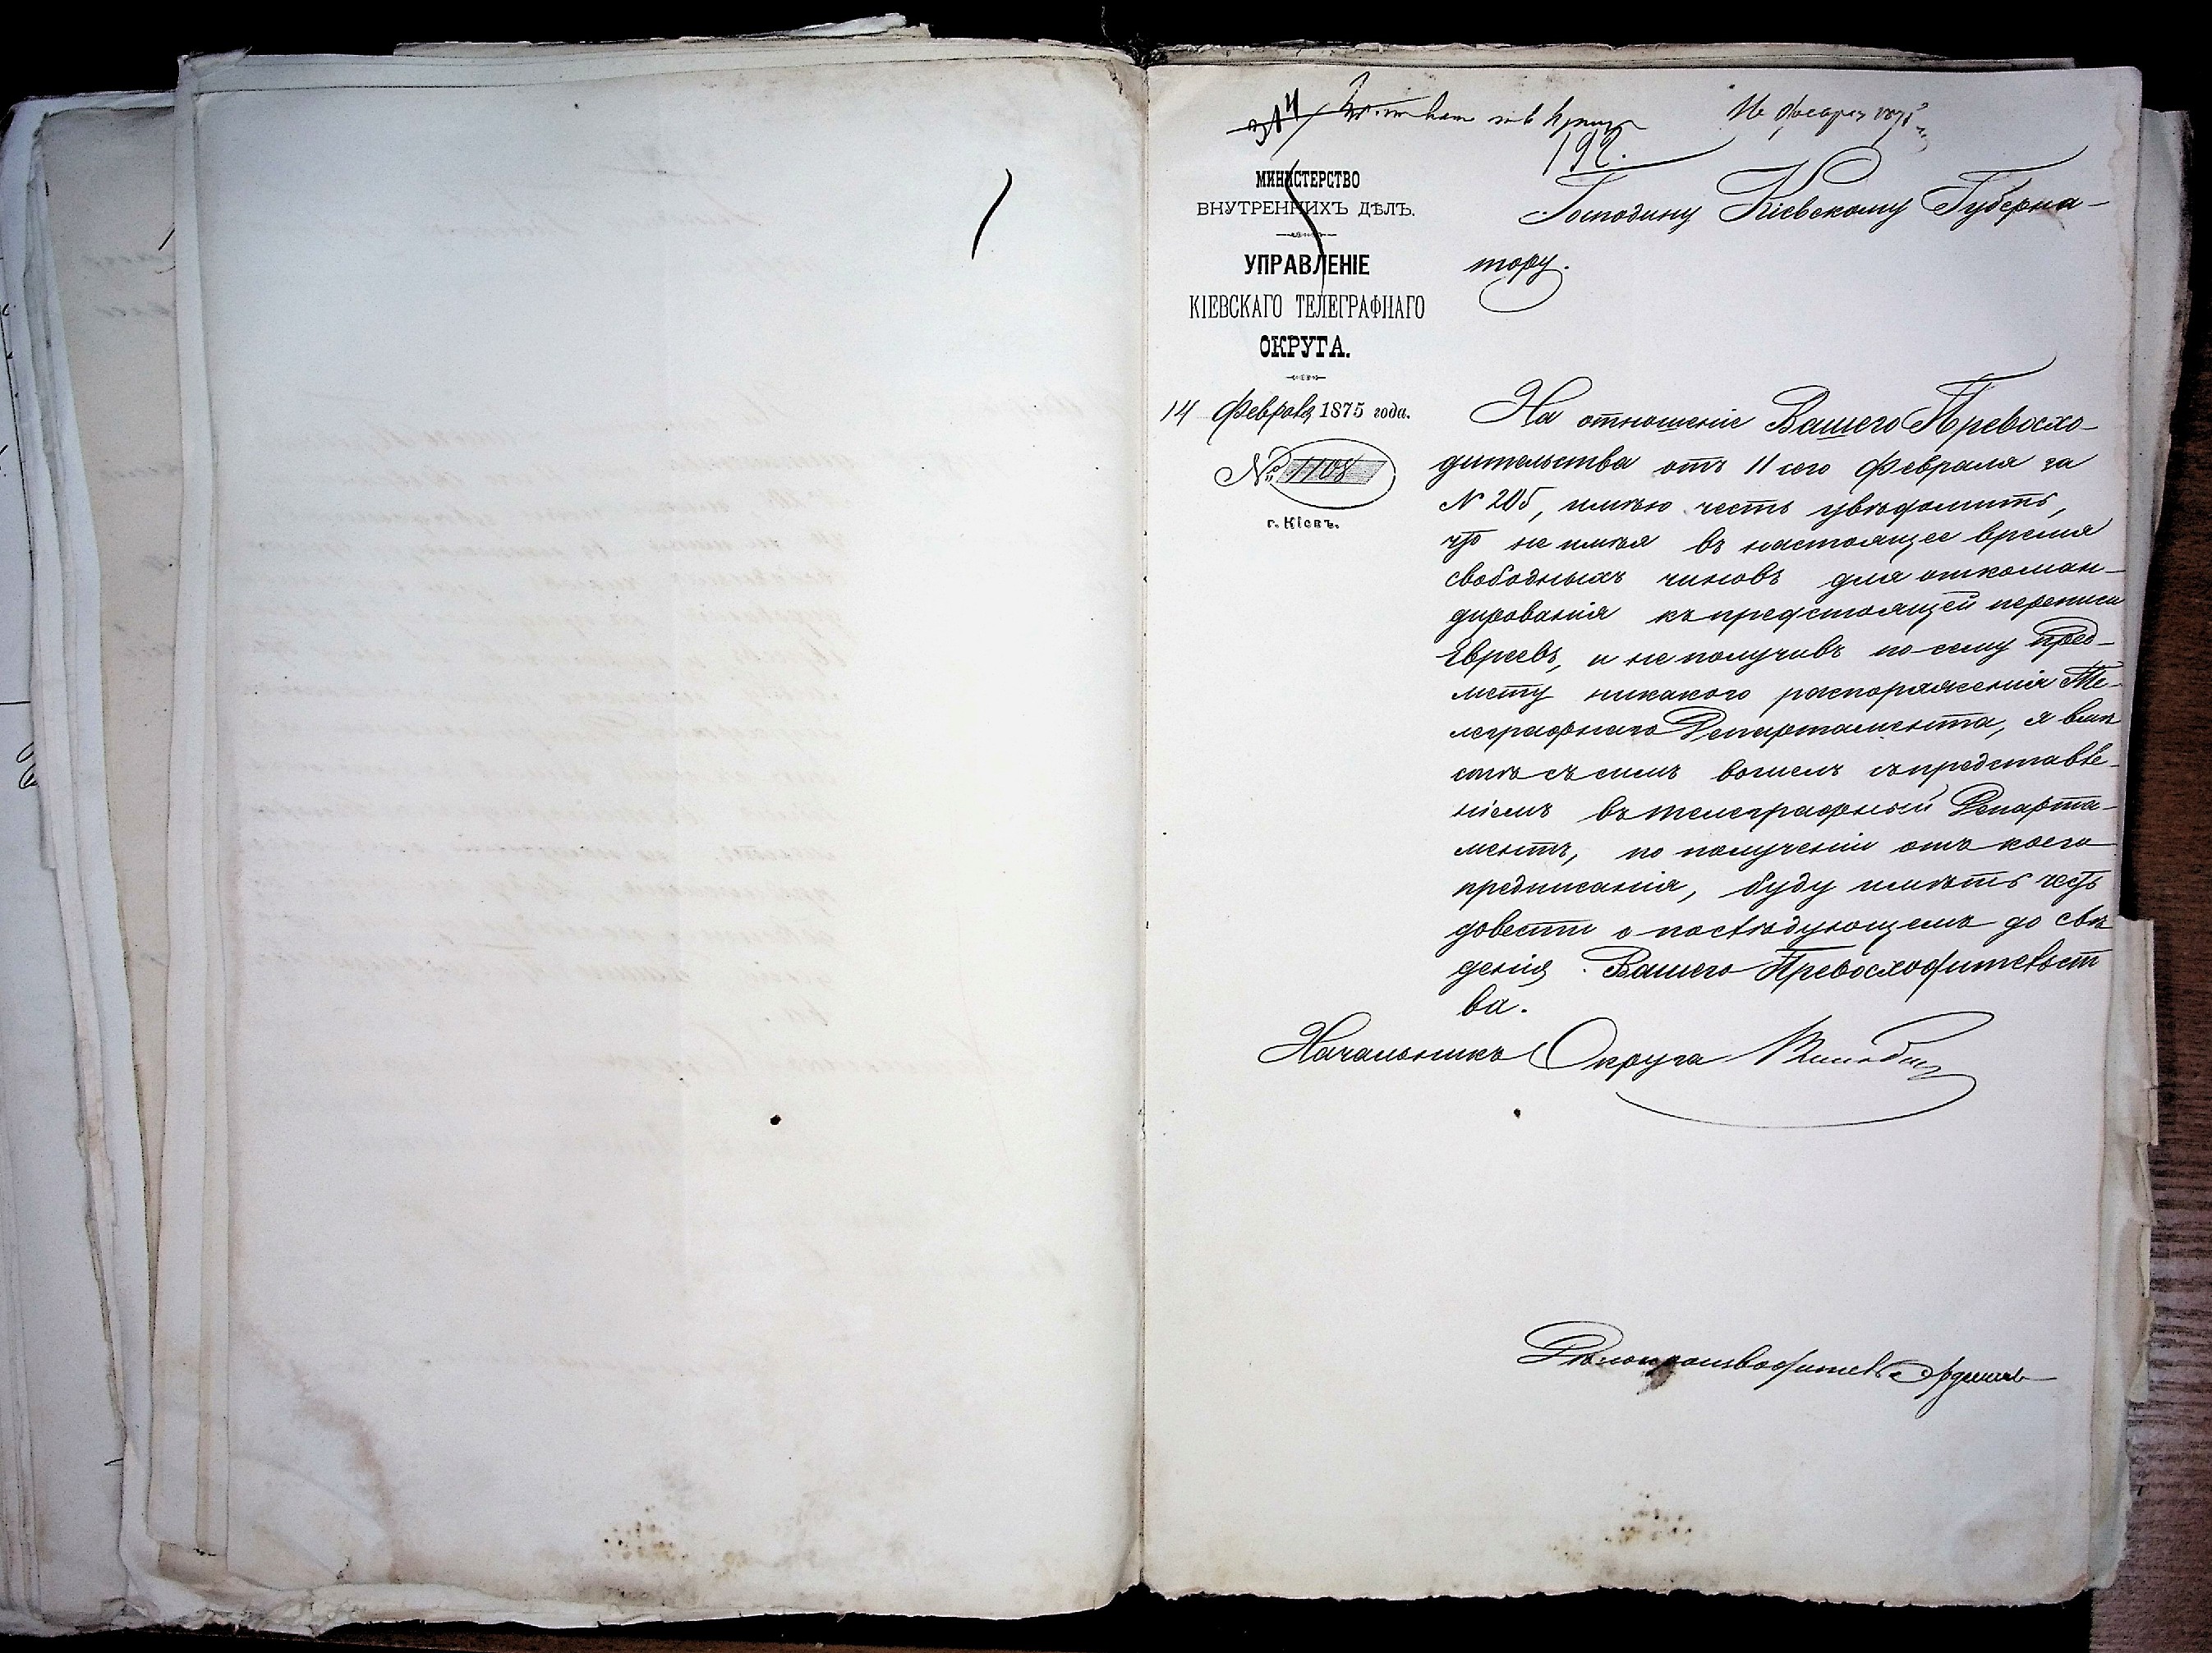 192.
МИНИСТЕРСТВО
ВНУТРЕННИХЪ ДѢЛЪ.
УПРАВЛЕНІЕ
КІЕВСКАГО ТЕЛЕГРАФНАГО
ОКРУГА.
14 Февраля 1875 года.
№ 1108
г. Кіевъ.
Господину Кіевскому Губерна-
тору.
На отношеніе Вашего Превосхо-
дительства отъ 11 сего Февраля за
N 205, имѣю честь увѣдомить,
что не имѣя въ настоящее время
свободныхъ чиновъ для откоман-
дированія къ предстоящей переписи
Евреевъ, и не получивъ по сему пред-
мету никакого распоряженія Те-
леграфнаго Департамента, я вмѣ
стѣ съ симъ вошелъ съ представле-
ніемъ въ телеграфный Департа-
ментъ, по полученіи отъ коего
предписанія, буду имѣть честь
довести о послѣдующемъ до свѣ
денія Вашего Превосходительст
ва.
Начальникъ Округа
Дѣлопроизводитель